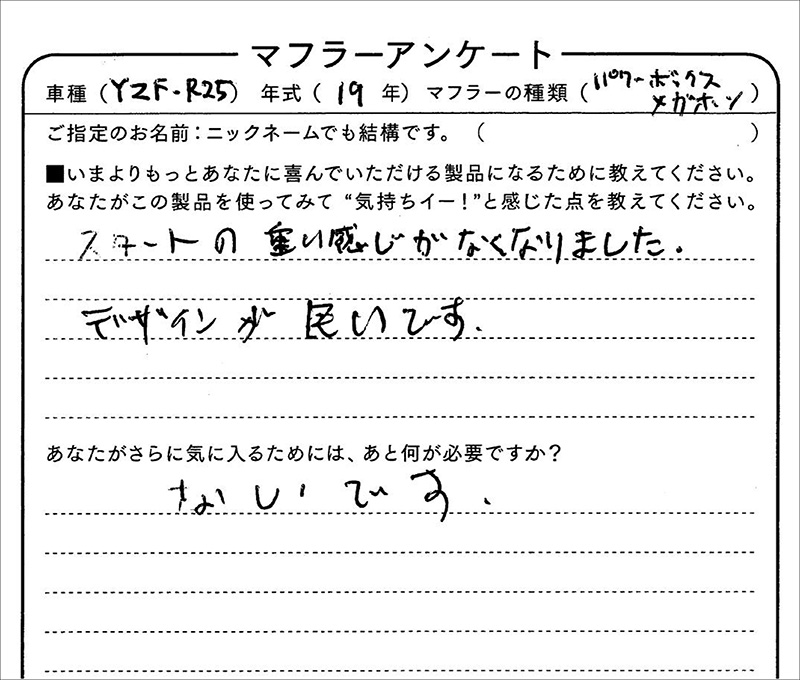 マフラーアンケート
車種（YZF-R25） 年式（19 年）マフラーの種類（パワーボックス メガホン）
ご指定のお名前：ニックネームでも結構です。（ ）
■いまよりもっとあなたに喜んでいただける製品になるために教えてください。
あなたがこの製品を使ってみて“気持ちイー！”と感じた点を教えてください。
スタートの重い感じがなくなりました.
デザインが良いです.
あなたがさらに気に入るためには、あと何が必要ですか？
ないです.